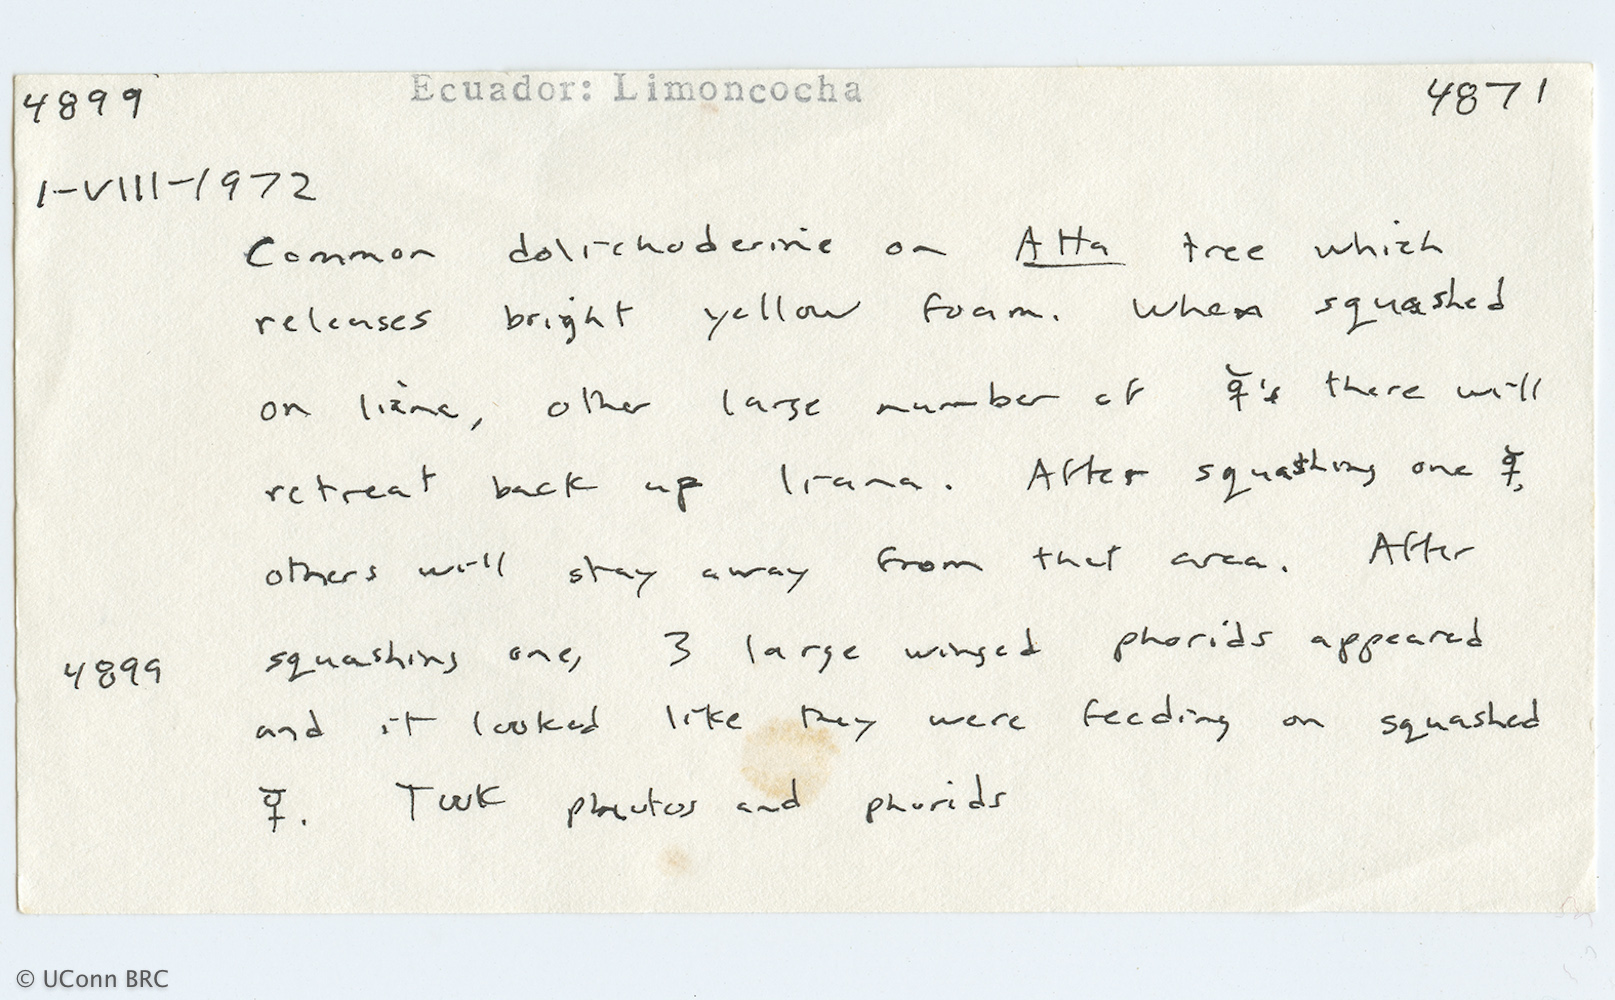 4899 Ecuador: Limoncocha 4871
1-VIII-1972
Common dolichoderine on Atta tree which
releases bright yellow foam. When squashed
on liana, other large number of ☿'s there will
retreat back up liana. After squashing one ☿,
others will stay away from that area. After
4899 squashing one, 3 large winged phorids appeared
and it looked like they were feeding on squashed
☿. Took photos and phorids
© UConn BRC